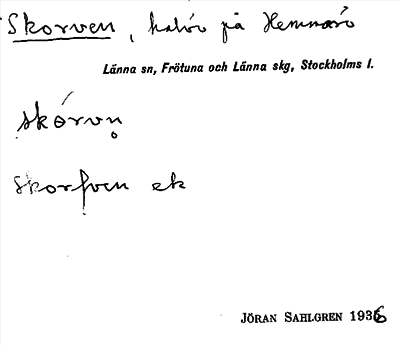 Skorven, halvö på Hemmarö
Länna sn, Frötuna och Länna skg, Stockholms l.
skórvn̥
Skorfven ek
JÖRAN SAHLGREN 1936